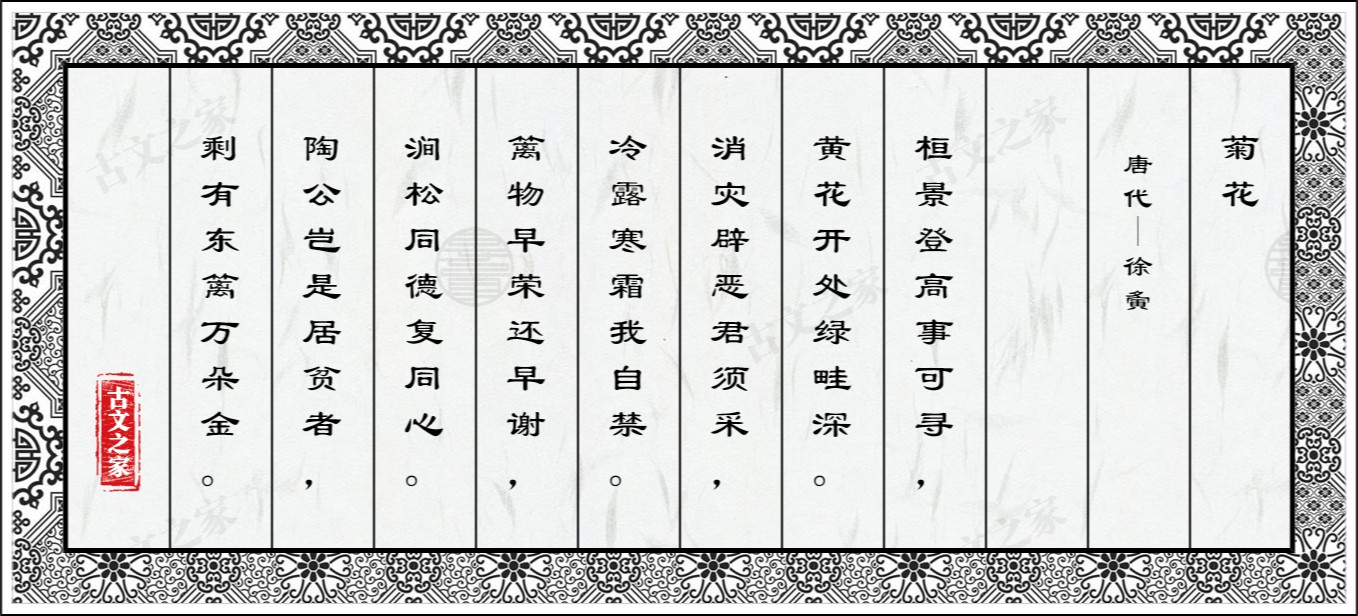 菊花
唐代——徐夤
桓景登高事可寻，
黄花开处绿畦深。
消灾辟恶君须采，
冷露寒霜我自禁。
篱物早荣还早谢，
涧松同德复同心。
陶公岂是居贫者，
剩有东篱万朵金。
古文之家